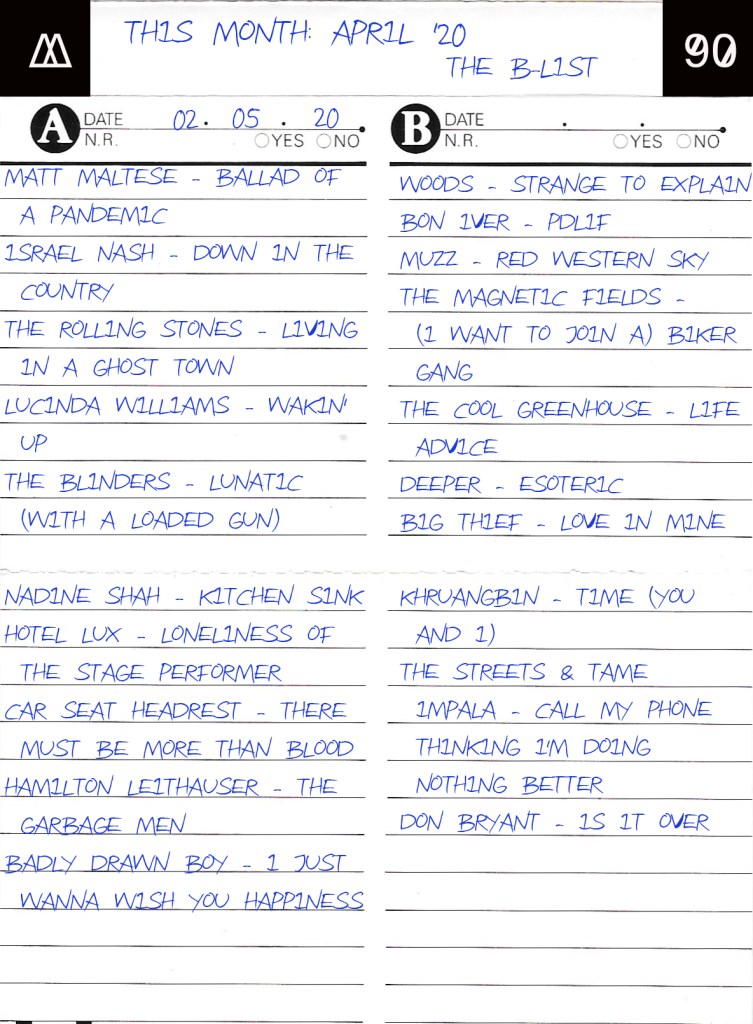 THIS MONTH: APRIL '20
THE B-LIST
90
A DATE 02. 05. 20
N.R. YES NO
MATT MALTESE - BALLAD OF
A PANDEMIC
ISRAEL NASH - DOWN IN THE
COUNTRY
THE ROLLING STONES - LIVING
IN A GHOST TOWN
LUCINDA WILLIAMS - WAKIN'
UP
THE BLINDERS - LUNATIC
(WITH A LOADED GUN)
NADINE SHAH - KITCHEN SINK
HOTEL LUX - LONELINESS OF
THE STAGE PERFORMER
CAR SEAT HEADREST - THERE
MUST BE MORE THAN BLOOD
HAMILTON LEITHAUSER - THE
GARBAGE MEN
BADLY DRAWN BOY - I JUST
WANNA WISH YOU HAPPINESS
B DATE . .
N.R. YES NO
WOODS - STRANGE TO EXPLAIN
BON IVER - PDLIF
MUZZ - RED WESTERN SKY
THE MAGNETIC FIELDS -
(I WANT TO JOIN A) BIKER
GANG
THE COOL GREENHOUSE - LIFE
ADVICE
DEEPER - ESOTERIC
BIG THIEF - LOVE IN MINE
KHRUANGBIN - TIME (YOU
AND I)
THE STREETS & TAME
IMPALA - CALL MY PHONE
THINKING I'M DOING
NOTHING BETTER
DON BRYANT - IS IT OVER